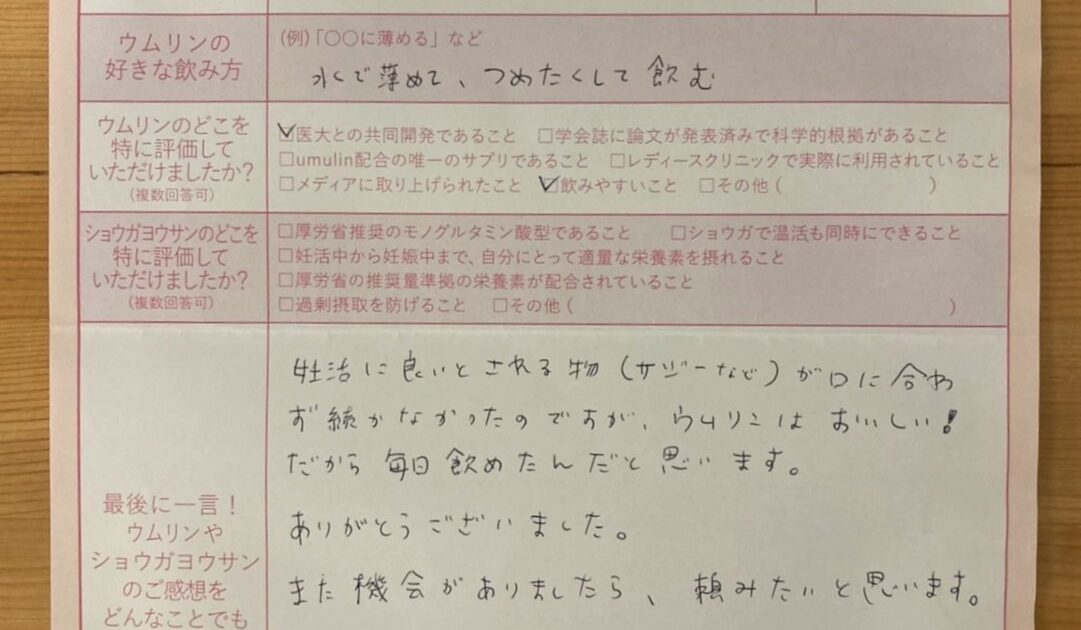 ウムリンの
好きな飲み方
(例)「○○に薄める」など
水で薄めて、つめたくして飲む
ウムリンのどこを
特に評価して
いただけましたか?
(複数回答可)
☑医大との共同開発であること □学会誌に論文が発表済みで科学的根拠があること
□umulin配合の唯一のサプリであること □レディースクリニックで実際に利用されていること
□メディアに取り上げられたこと ☑飲みやすいこと □その他( )
ショウガヨウサンのどこを
特に評価して
いただけましたか?
(複数回答可)
□厚労省推奨のモノグルタミン酸型であること □ショウガで温活も同時にできること
□妊活中から妊娠中まで、自分にとって適量な栄養素を摂れること
□厚労省の推奨量準拠の栄養素が配合されていること
□過剰摂取を防げること □その他( )
最後に一言!
ウムリンや
ショウガヨウサン
のご感想を
どんなことでも
妊活に良いとされる物(サジーなど)が口に合わ
ず続かなかったのですが、ウムリンはおいしい!
だから毎日飲めたんだと思います。
ありがとうございました。
また機会がありましたら、頼みたいと思います。